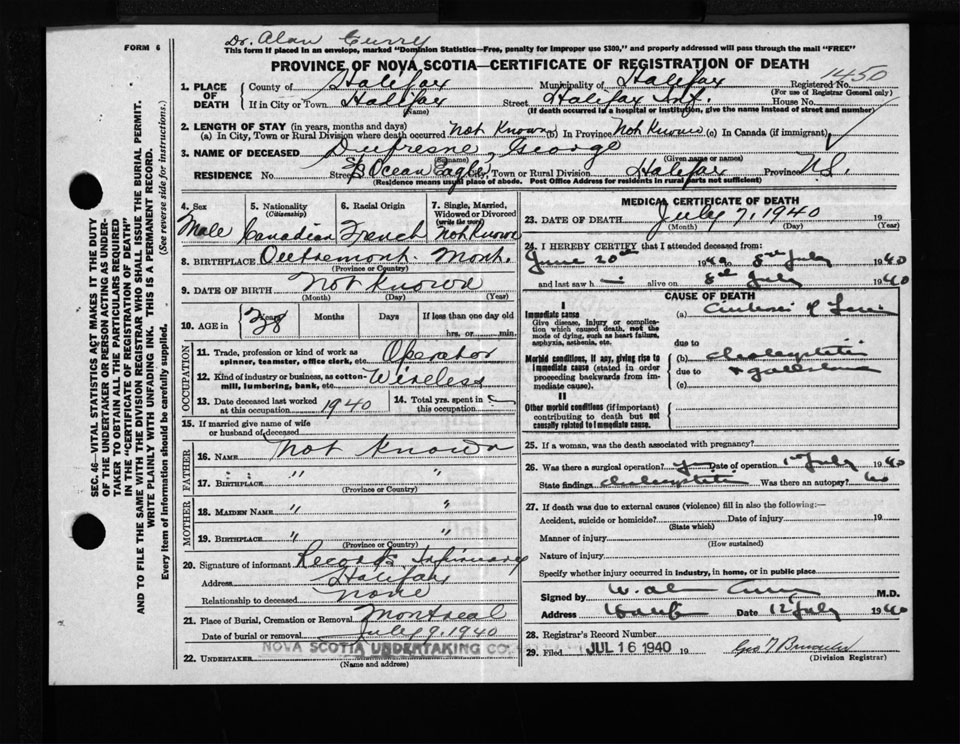 Dr. Alan Curry
FORM 6
This form if placed in an envelope, marked "Dominion Statistics—Free, penalty for improper use $300," and properly addressed will pass through the mail "FREE"
PROVINCE OF NOVA SCOTIA—CERTIFICATE OF REGISTRATION OF DEATH
1450
1. PLACE OF DEATH
County of Halifax Municipality of Halifax Registered No.
(For use of Registrar General only)
If in City or Town Halifax Street Halifax Inf. House No.
(Name) (If death occurred in a hospital or institution, give the name instead of street and number)
2. LENGTH OF STAY (in years, months and days)
(a) In City, Town or Rural Division where death occurred Not Known (b) In Province Not Known (c) In Canada (if immigrant)
3. NAME OF DECEASED Dufresne, George
(Surname) (Given name or names)
RESIDENCE No. Street S/S Ocean Eagle, City, Town or Rural Division Halifax Province N.S.
(Residence means usual place of abode. Post Office Address for residents in rural parts not sufficient)
4. Sex Male
5. Nationality (Citizenship) Canadian
6. Racial Origin French
7. Single, Married, Widowed or Divorced (write the word) Not Known
8. BIRTHPLACE Outremont. Mont.
(Province or Country)
9. DATE OF BIRTH Not Known
(Month) (Day) (Year)
10. AGE in Years 28 Months Days If less than one day old
hrs. or min.
OCCUPATION
11. Trade, profession or kind of work as spinner, teamster, office clerk, etc. Operator
12. Kind of industry or business, as cotton-mill, lumbering, bank, etc. Wireless
13. Date deceased last worked at this occupation 1940
14. Total yrs. spent in
15. If married give name of wife or husband of deceased
FATHER
16. Name Not Known
17. Birthplace " "
(Province or Country)
MOTHER
18. Maiden Name " "
19. Birthplace " "
(Province or Country)
20. Signature of informant Records Infirmary
Address Halifax
Relationship to deceased None
21. Place of Burial, Cremation or Removal Montreal
Date of burial or removal July 9, 1940
22. Undertaker NOVA SCOTIA UNDERTAKING CO.
(Name and address)
MEDICAL CERTIFICATE OF DEATH
23. DATE OF DEATH July 7, 1940 19
(Month) (Day) (Year)
24. I HEREBY CERTIFY that I attended deceased from:
June 20th 1940 to 8th July 1940
and last saw h alive on 8th July 1940
CAUSE OF DEATH
I
Immediate cause
Give disease, injury or complication which caused death, not the mode of dying, such as heart failure, asphyxia, asthenia, etc.
(a) Cirrhosis of Liver
due to
Morbid conditions, if any, giving rise to immediate cause (stated in order proceeding backwards from immediate cause).
(b) cholecystitis
due to + gallstones
(c)
II
Other morbid conditions (if important) contributing to death but not causally related to immediate cause.
25. If a woman, was the death associated with pregnancy?
26. Was there a surgical operation? yes Date of operation 1st July 1940
State findings cholecystitis Was there an autopsy? no
27. If death was due to external causes (violence) fill in also the following:—
Accident, suicide or homicide? Date of injury 19
(State which)
Manner of injury
(How sustained)
Nature of injury
Specify whether injury occurred in industry, in home, or in public place
Signed by W. Alan Curry M.D.
Address Halifax Date 12 July 1940
28. Registrar's Record Number
29. Filed JUL 16 1940 19
(Division Registrar)
SEC. 46—VITAL STATISTICS ACT MAKES IT THE DUTY
OF THE UNDERTAKER OR PERSON ACTING AS UNDER-
TAKER TO OBTAIN ALL THE PARTICULARS REQUIRED
IN THE "CERTIFICATE OF REGISTRATION OF DEATH"
AND TO FILE THE SAME WITH THE DIVISION REGISTRAR WHO SHALL ISSUE THE BURIAL PERMIT.
WRITE PLAINLY WITH UNFADING INK. THIS IS A PERMANENT RECORD.
Every item of information should be carefully supplied. (See reverse side for instructions.)